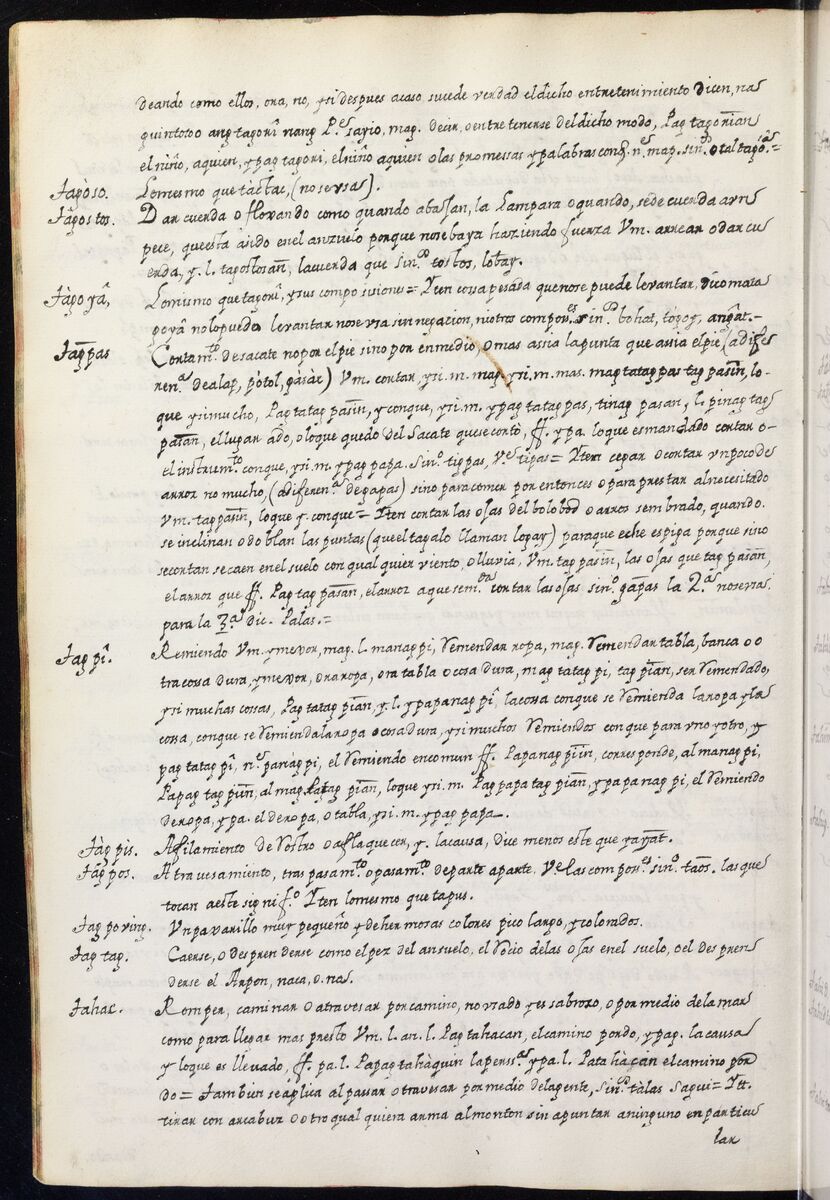 deando como ellos, ora, no, y si despues acaso sucede verdad el dicho entretenimiento dicen, nag
quintotoo ang tagorî nang P.e sayio, mag. decir, o entretenerse del dicho modo, Pag tagorîan
el niño, a quien, y pag tagori, el niño a quien o las promessas y palabras con q. n.es map. sin.o otal tagô.as =
Tagòso. Lo mesmo que tactac, (no se usa).
Tagostos. Dar cuerda o florando como quando abajan, la Lampara o quando, se de cuerda a un
pece, que esta asido en el anzuelo porque no se baya haziendo fuerza Vm. arrear o dar cu
erda, y. l. tagostosan, la cuerda que sin.o tostos, lobay.
Tàgoyâ, Lo mismo que tagorî, y sus composisiones = Yten cossa pesada que no se puede levantar, dico mata
goyâ no lo puedo levantar no se usa sin negacion, ni otros compon.es sin.o bohat,
Tagpas Cortam.to de sacate no por el pie sino por en medio, o mas assia la punta que assia el pie (a dife
ren.a de alap, pòtol, gàsàc) Vm. cortar, y si. m. mag. y si. m. mas. magtatagpas tagpasin, lo
que y si mucho, Pag tatag pasin, y con que, y si. m. y pag tatagpas, tinag pasan, l. pinag tag
pasan, el lugar ado, o lo que quedo del Sacate que se corto, ff. y pa. lo que es mandado cortar o
el instrum.to con que, y si. m. y pag papa. Sin.o tigpas, V.e tipas = Yten cegar o cortar un poco de
arroz no mucho, (a diferen.a de gapas) sino para comer por entonces o para prestar al necesitado
Vm. tagpasin, lo que y. con que = Yten cortar las ojas del bolobod o arros sembrado, quando
se inclinan o doblan las puntas (que el tagalo llaman logay) para que eche espiga porque sino
se cortan se caen en el suelo con qual quier viento, o lluvia, Vm. tagpasin, las ojas que tagpasan,
el arroz que ff. Pag tagpasan, el arroz a que sem. cortar las ojas sin.o gapas la 2.a no se usa
para la 3.a dic. Palas. =
Tagpî. Remiendo Vm. y mexor, mag. l. managpi, Remendar ropa, mag. Remendar tabla, banca o o
tra cossa dura, y mexor, ora ropa, ora tabla o cosa dura, mag tatagpi, tagpian, ser Remendado,
y si muchas cossas, Pag tatagpian, y. l. y papanagpî, la cossa con que se Remienda la ropa y la
cossa, con que se Remienda la ropa o cosa dura, y si muchos Remiendos con que para uno y otro, y
pag tatagpî, n.e panàgpi, el Remiendo en comun ff. Papanagpiin, corresponde, al managpi,
Papag tagpiin, al mag, tatagpian, lo que y si. m. Pag papatagpian, y papanagpi, el Remiendo
de ropa, y pa. el de ropa, o tabla, y si. m. y pag papa.
Tàgpis. Afilamiento de Rostro o aflaquecer, y. la causa, dice menos este que yayat.
Tàgpos. Atravesamiento, traspasam.to o pasam.to de parte a parte. Ve las compos.es sin.o taòs. las que
tocan a este signif.o Yten lo mesmo que tagus.
Tagpoving. Un pavarillo muy pequeño y de hermosas colores pico largo, y colorados.
Tagtag. Caerse, o desprenderse como el pez del ansuelo, el Rocio de las ojas en el suelo, o el despren
derse el Arpon, naca, o. nag.
Tahac. Romper, caminar o atravesar por camino, no usado y es sabroso, o por medio de la mar
como para llegar mas presto Vm. l. an. l. Pag tahacan, el camino por do, y pag. la causa
y lo que es llevado, ff. pa. l. Papagtahàquin la perss.as y pa. l. Patahàcan el camino por
do = Tambien se aplica al passar o travesar por medio de la gente, sin.o tàlas sagui = Ytt.
tirar con arcabuz o otro qual quiera arma al monton sin apuntar a ninguno en particu
lar